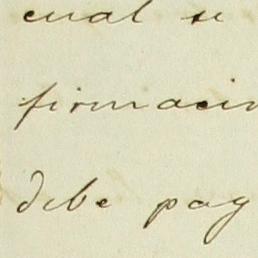 cual se
firmacin
debe pag